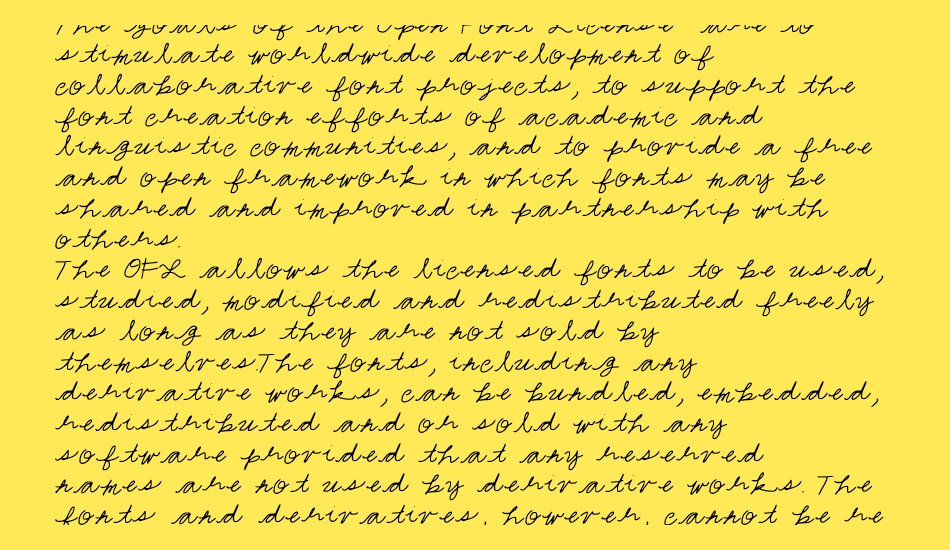 The goals of the Open Font License are to
stimulate worldwide development of
collaborative font projects, to support the
font creation efforts of academic and
linguistic communities, and to provide a free
and open framework in which fonts may be
shared and improved in partnership with
others.
The OFL allows the licensed fonts to be used,
studied, modified and redistributed freely
as long as they are not sold by
themselves.The fonts, including any
derivative works, can be bundled, embedded,
redistributed and or sold with any
software provided that any reserved
names are not used by derivative works. The
fonts and derivatives, however, cannot be re